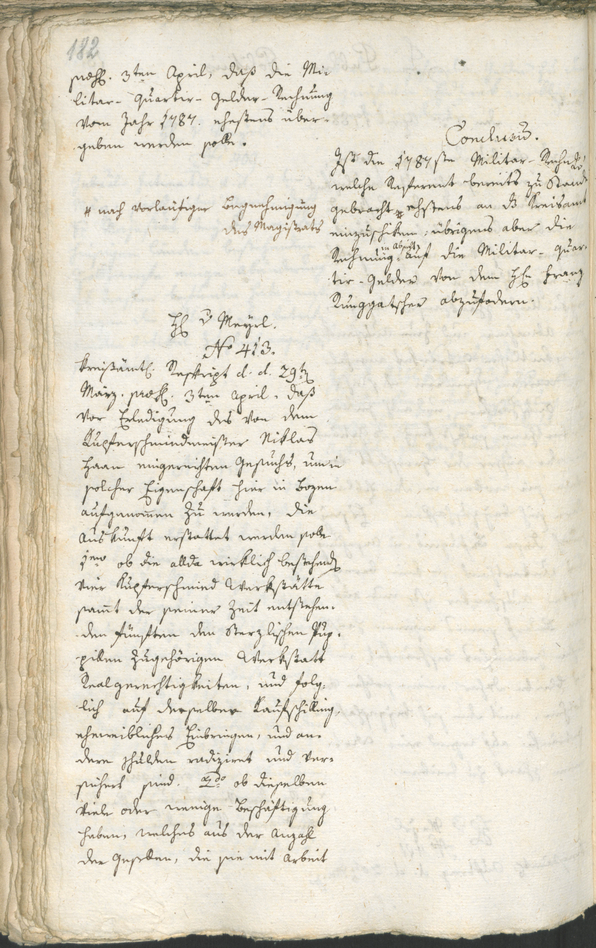 182
praes. 3ten April, daß die Mi-
litar- Quartir- Gelder- Rechnung
vom Jahr 1787. ehestens über-
geben werden solle.
Conclusum.
Ist die 1787ste Militar- Rechn.
welche bereits zu Stand
gebracht # ehestens an das Kreisamt
einzuschiken, übrigens aber die
Rechnung auf die Militar- Quar-
tir- Gelder von dem H. Franz
Runggatscher abzufodern.
# nach vorläufiger Begnehmigung
des Magistrats
H. v Meyrl.
No 413.
Kreisämtl. Reskript d. d. 29t
März, praes. 3ten April, daß
vor Erledigung des von dem
Kupferschmidmeister Niklas
Haan eingereichten Gesuchs, um in
solcher Eigenschaft hier in Bozen
aufgenommen zu werden, die
Auskunft erstattet werden solle
1mo ob die allda wirklich bestehend
vier Kupferschmied Werkstätte
sammt der seiner Zeit entstehen-
den fünften den Sterzlischen Pup-
pillen zugehörigen Werkstatt
Realgerechtigkeiten, und folg-
lich auf derselben Kaufschilling
eheweibliches Einbringen, und an-
dere Schulden radiziret und ver-
sichert sind. 2do ob dieselben
viele oder wenige Beschäftigung
haben, welches aus der Anzahl
der Gesellen, die sie mit Arbeit